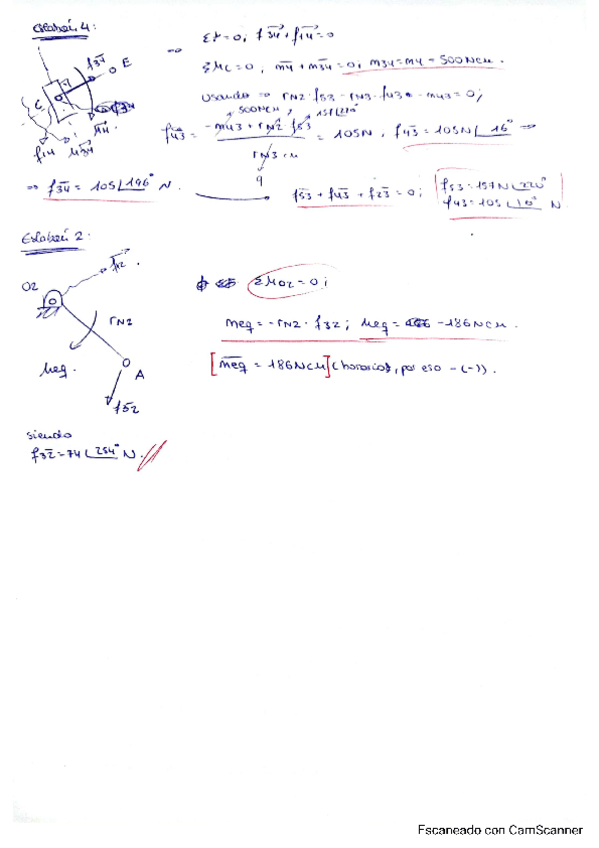 Eslabón 4:
ΣF=0; f34+f14=0
ΣMc=0; m4+m34=0; m34=m4=-500Ncm.
Usando => rN2·f53-rN3·f43-m43=0;
500Ncm
f43 = -m43+rN2·f53 / rN3 = 105N, f43=105N∠16° =>
9
=> f34=105∠196° N.
f53+f43+f23=0;
f53=157N∠220°
f43=105∠16° N
f34
E
C
f14
m34
m4
Eslabón 2:
O2
rN2
Meq.
A
f32
ΣMO2=0;
meq=-rN2·f32; Meq=-186Ncm.
[meq=186Ncm] (horario, por eso -(-)).
siendo
f32=74∠254° N.
Escaneado con CamScanner